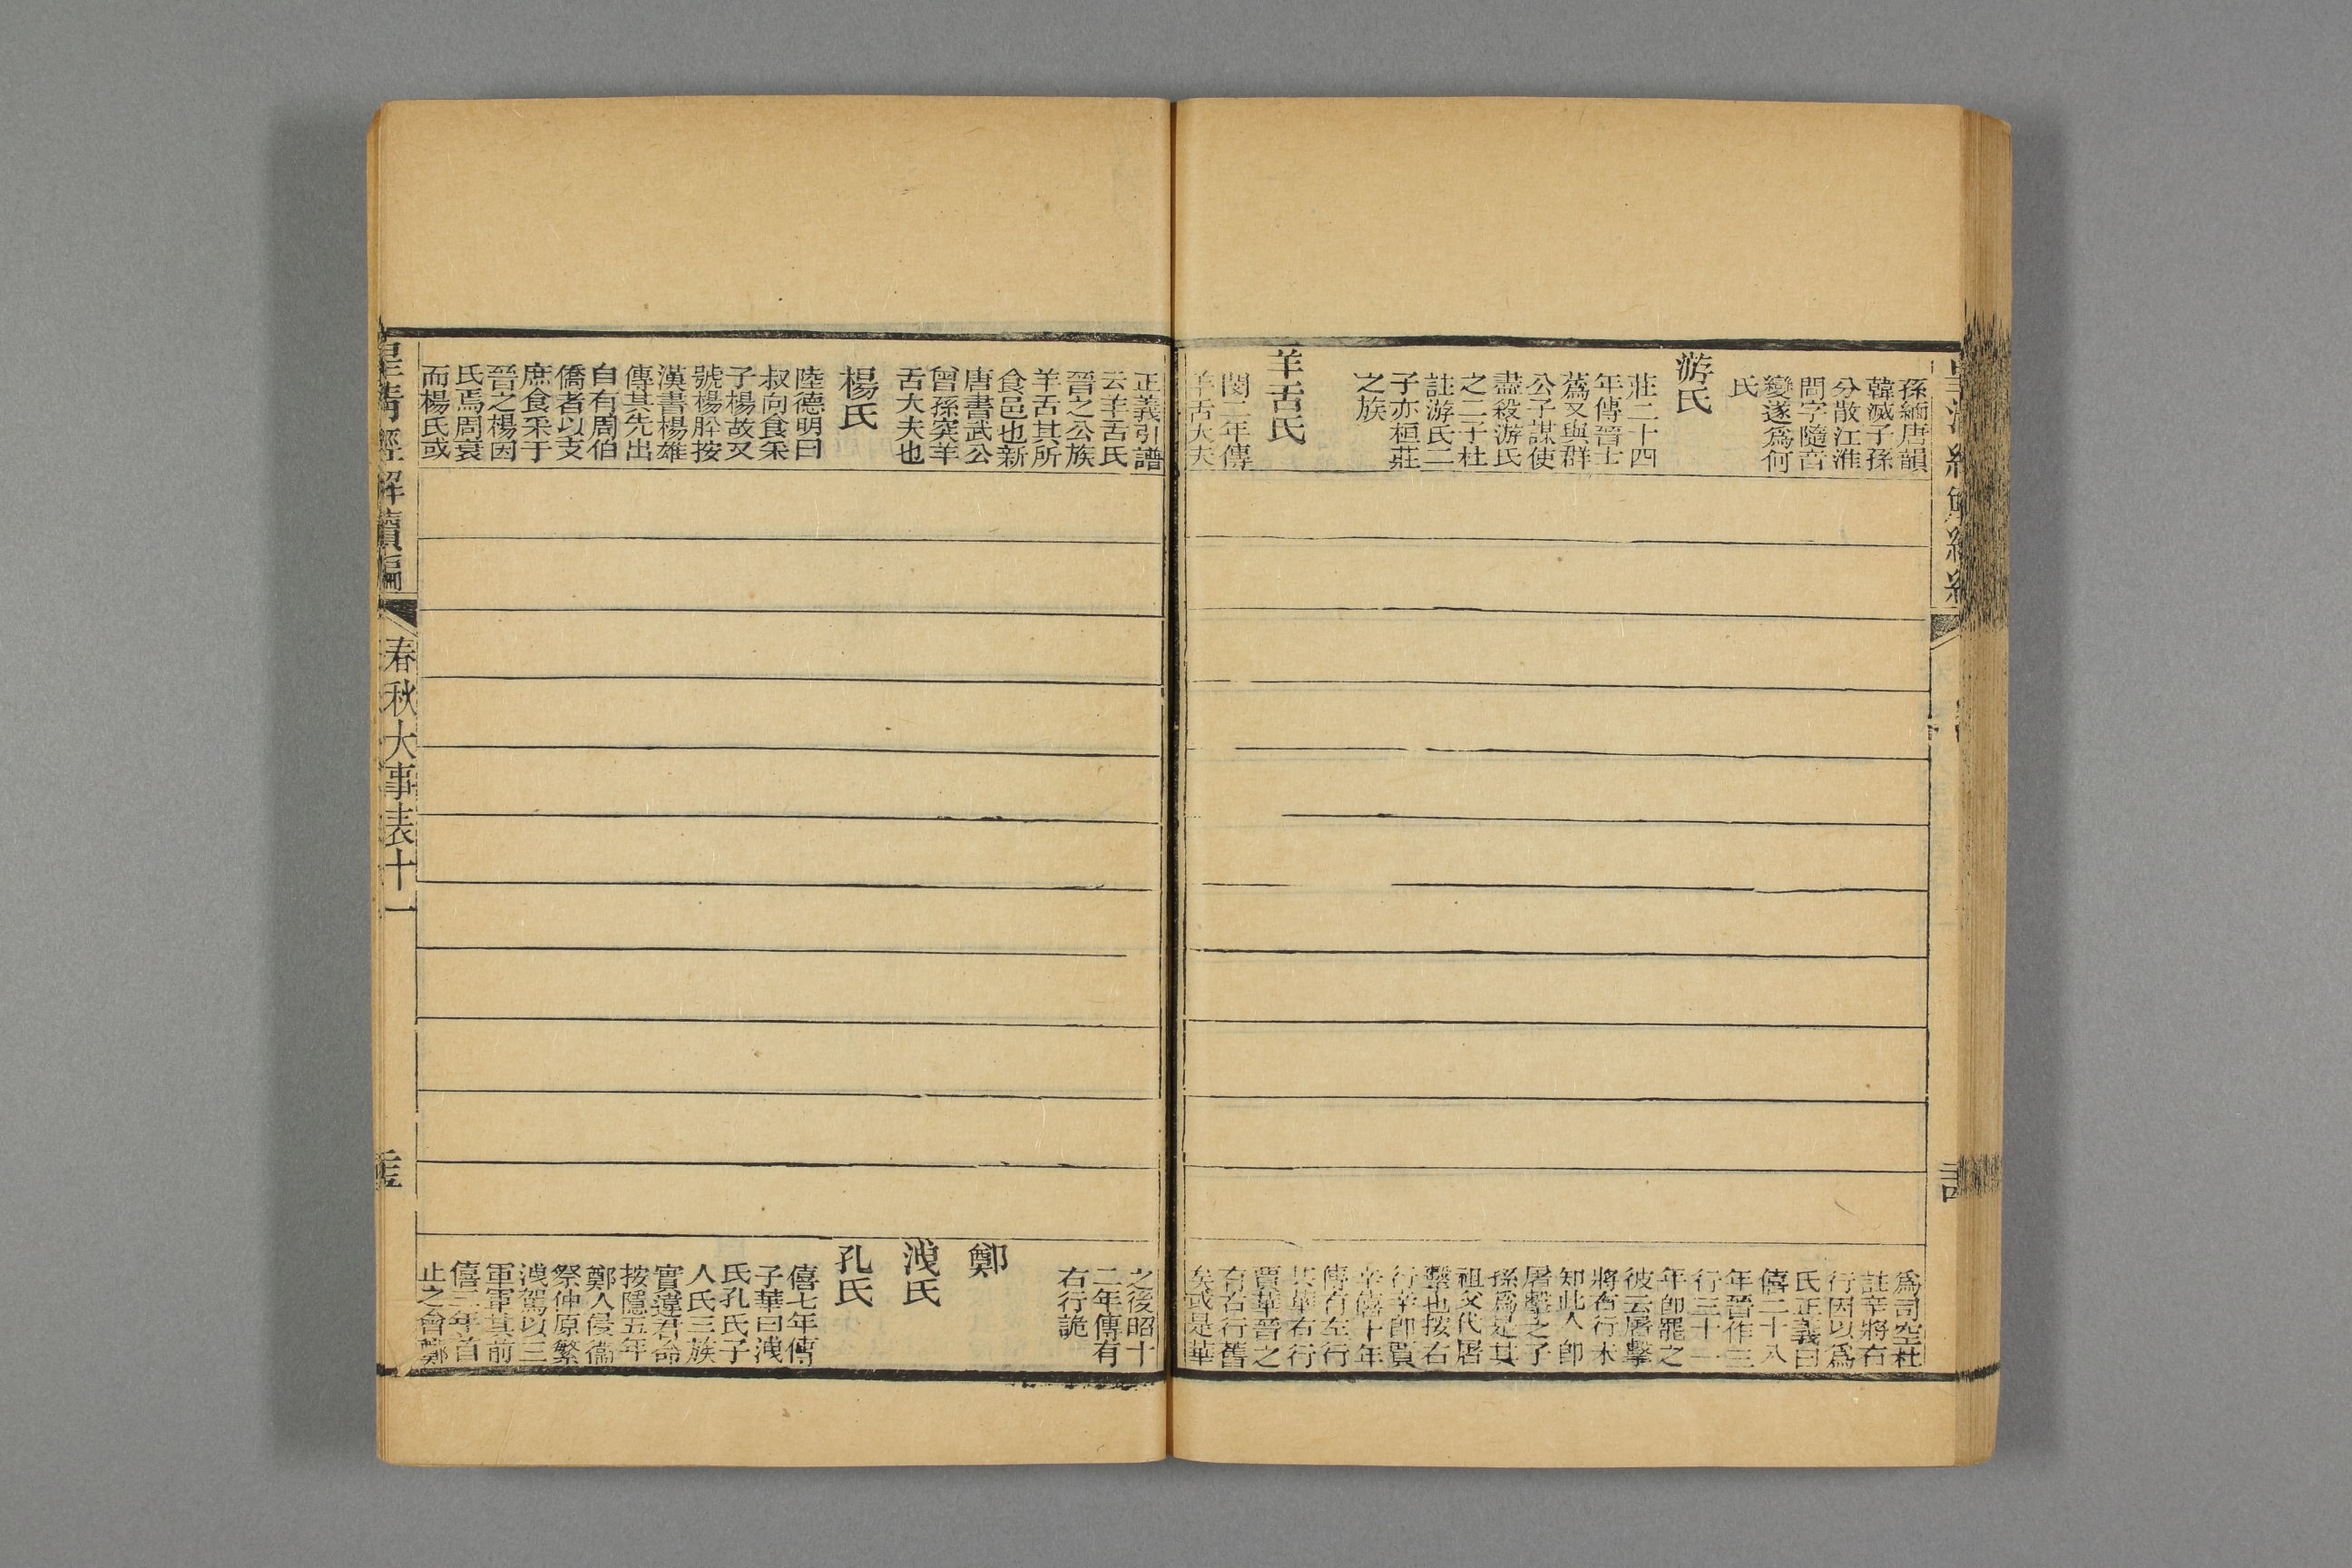 孫緬唐韻
韓滅子孫
分散江淮
間字隨音
變遂爲何
氏
游氏
莊二十四
年傳晉士
蒍又與群
公子謀使
盡殺游氏
之二子杜
註游氏二
子亦桓莊
之族
羊舌氏
閔二年傳
羊舌大夫
爲司空杜
註辛將右
行因以爲
氏正義曰
僖二十八
年晉作三
行三十一
年卽罷之
彼云屠擊
將右行未
知此人卽
屠擊之子
孫爲是其
祖父代屠
擊也按右
行辛卽賈
辛僖十年
傳有左行
共華右行
賈華晉之
有右行舊
矣或是華
正義引譜
云羊舌氏
晉之公族
羊舌其所
食邑也新
唐書武公
曾孫突羊
舌大夫也
楊氏
陸德明曰
叔向食采
子楊故又
號楊肸按
漢書楊雄
傳其先出
自有周伯
僑者以支
庶食采于
晉之楊因
氏焉周衰
而楊氏或
之後昭十
二年傳有
右行詭
鄭
洩氏
孔氏
僖七年傳
子華曰洩
氏孔氏子
人氏三族
實違君命
按隱五年
鄭人侵衞
祭仲原繁
洩駕以三
軍軍其前
僖三年首
止之會鄭
皇清經解續編
春秋大事表十一